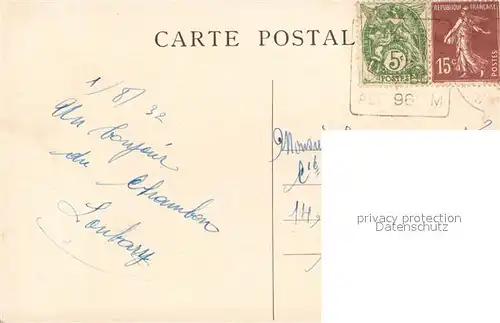 CARTE POSTAL
5c
POSTES
REPUBLIQUE FRANÇAISE
15c
POSTES
96 M
1/8/32
Un bonjour
du Chambon
Loubary
14,
privacy protection
Datenschutz